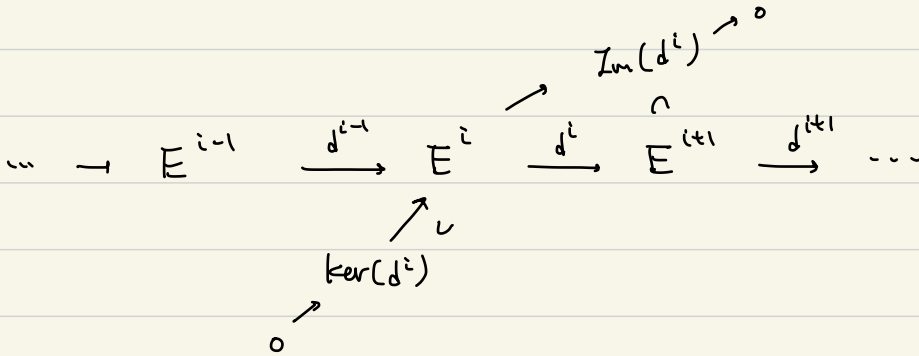 Im(dⁱ) → 0
∩
··· → Eⁱ⁻¹ dⁱ⁻¹→ Eⁱ dⁱ→ Eⁱ⁺¹ dⁱ⁺¹→ ···
∪
ker(dⁱ)
0